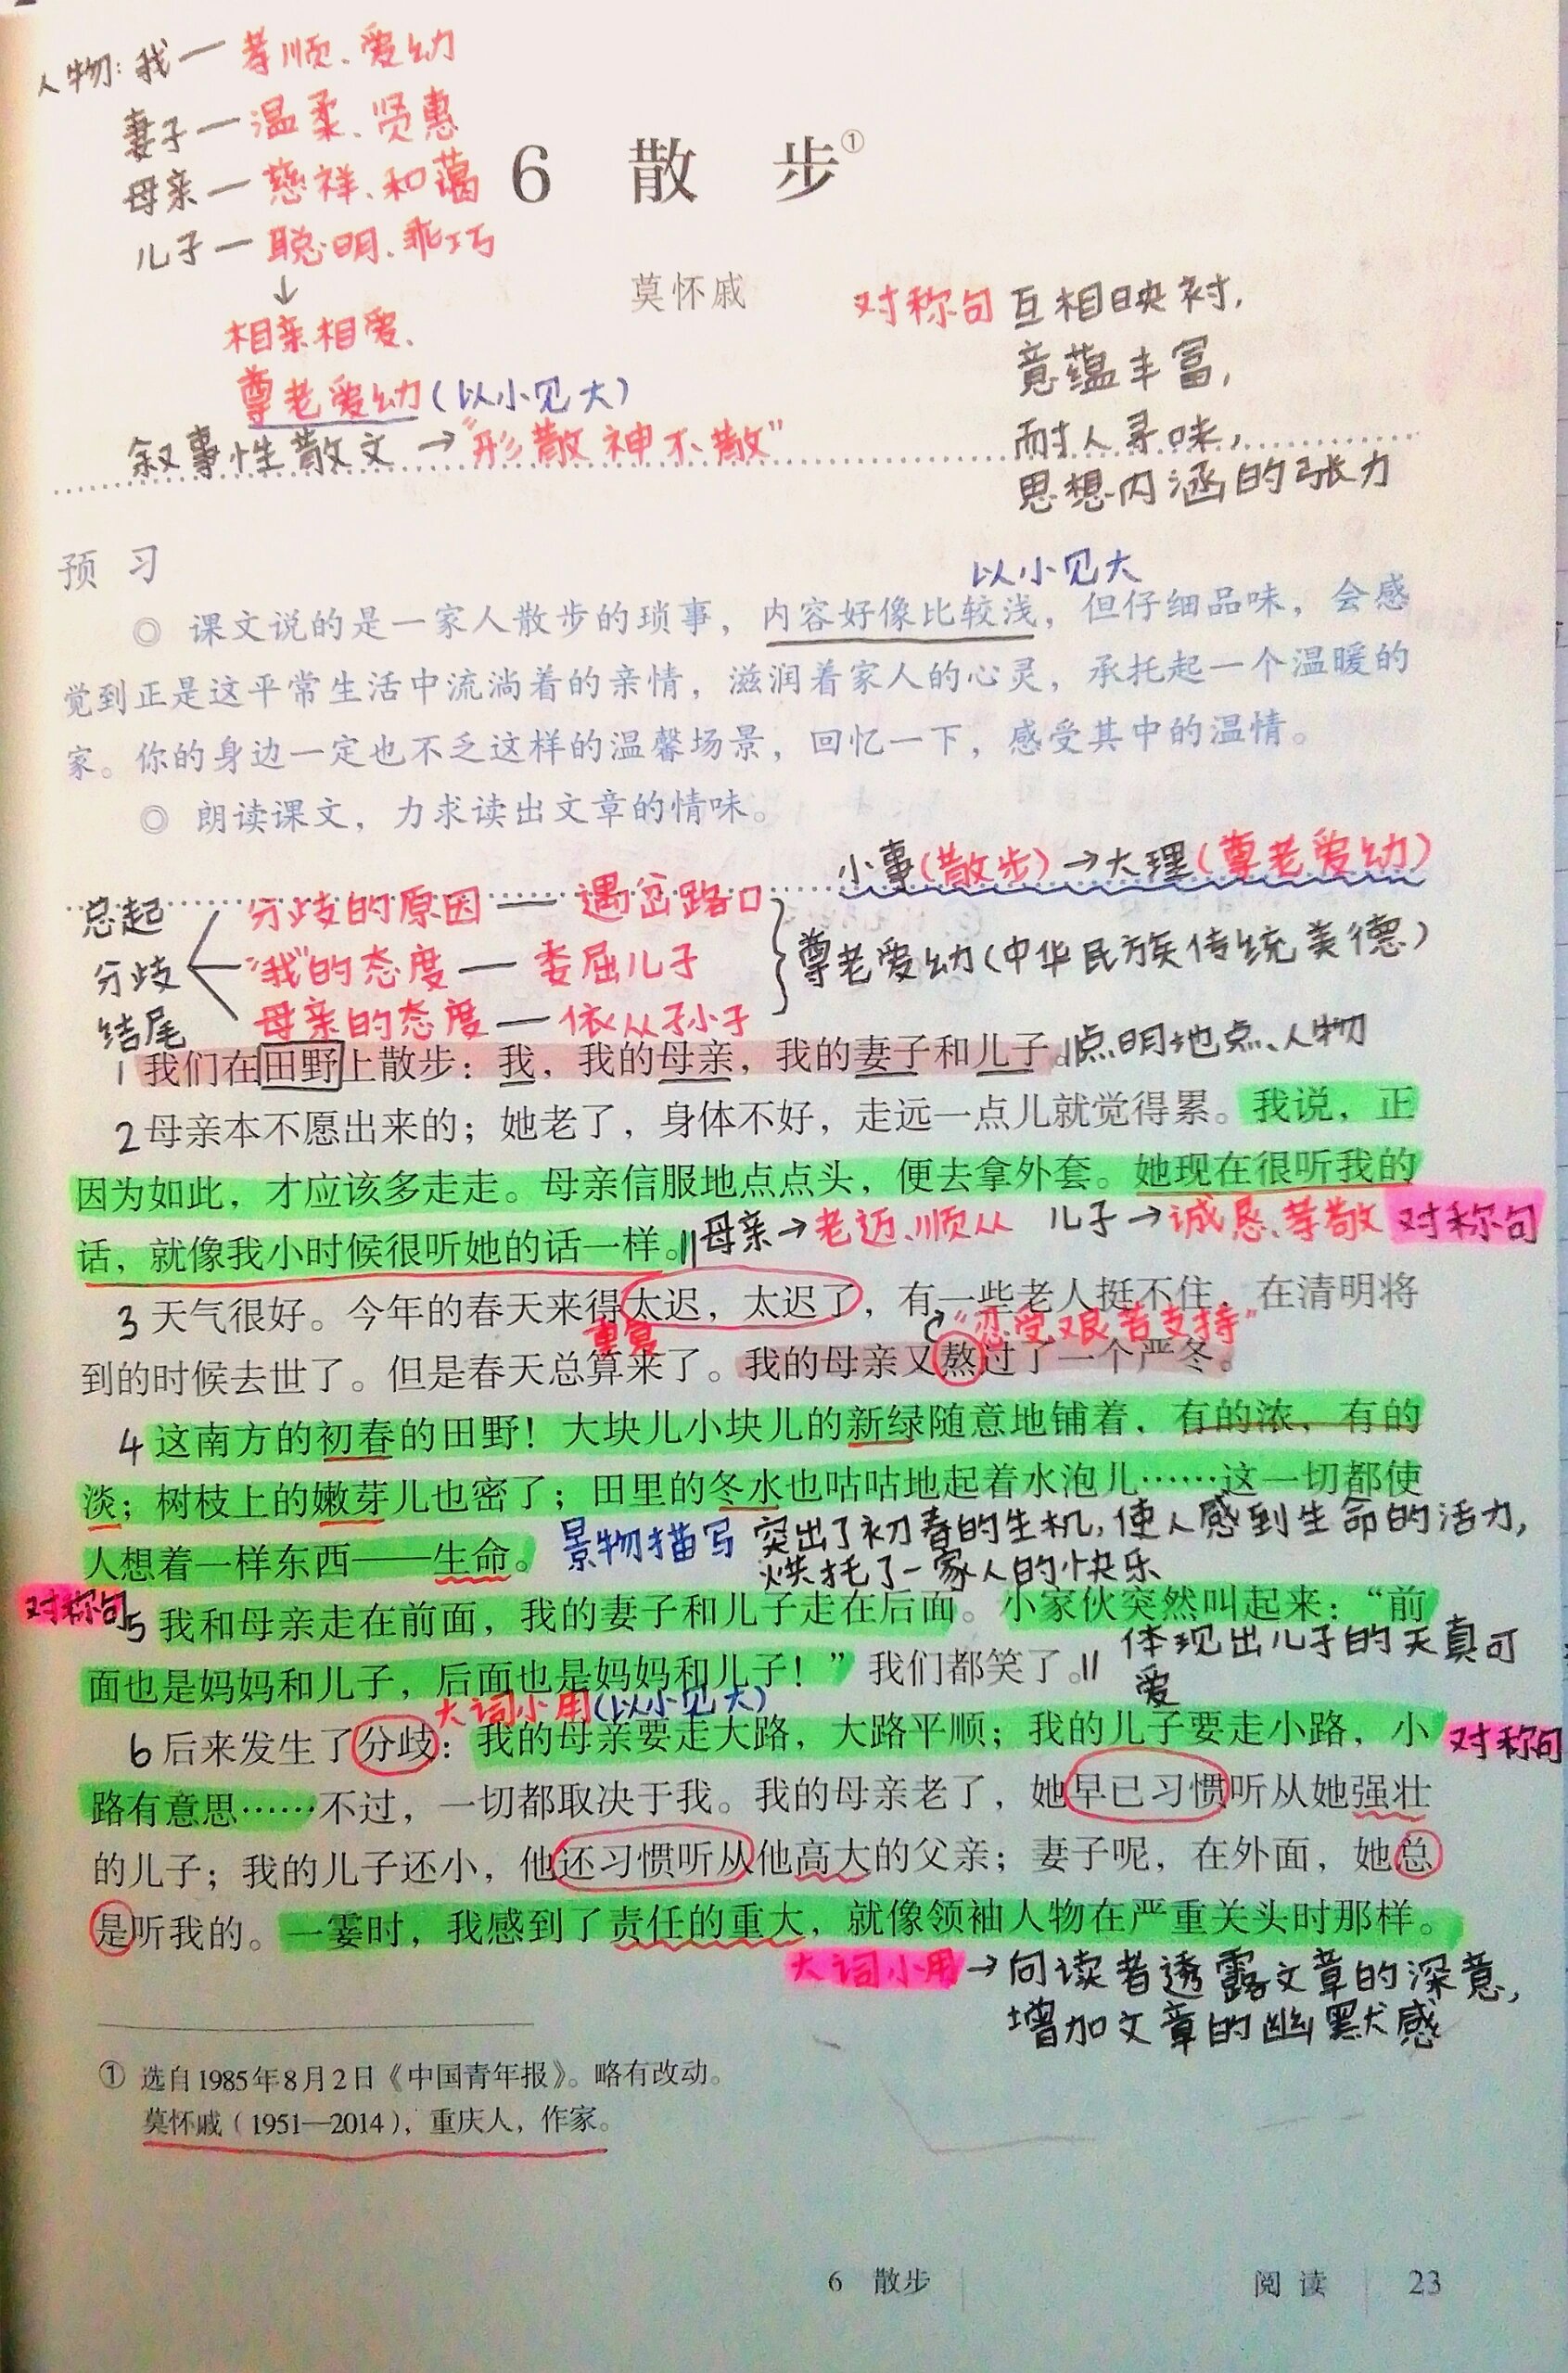 人物：我—孝顺、爱幼
妻子—温柔、贤惠
母亲—慈祥、和蔼
儿子—聪明、乖巧
↓
相亲相爱、
尊老爱幼（以小见大）
叙事性散文→“形散神不散”
6 散步①
莫怀戚
对称句 互相映衬，
意蕴丰富，
耐人寻味，
思想内涵的张力
预习
以小见大
◎ 课文说的是一家人散步的琐事，内容好像比较浅，但仔细品味，会感
觉到正是这平常生活中流淌着的亲情，滋润着家人的心灵，承托起一个温暖的
家。你的身边一定也不乏这样的温馨场景，回忆一下，感受其中的温情。
◎ 朗读课文，力求读出文章的情味。
小事（散步）→大理（尊老爱幼）
总起
分歧
结尾
分歧的原因——遇岔路口
“我”的态度——委屈儿子
母亲的态度——依从孙子
尊老爱幼（中华民族传统美德）
1 我们在田野上散步：我，我的母亲，我的妻子和儿子。‖点明地点、人物
2 母亲本不愿出来的；她老了，身体不好，走远一点儿就觉得累。我说，正
因为如此，才应该多走走。母亲信服地点点头，便去拿外套。她现在很听我的
话，就像我小时候很听她的话一样。‖母亲→老迈、顺从 儿子→诚恳、孝敬 对称句
3 天气很好。今年的春天来得太迟，太迟了，有一些老人挺不住，在清明将
重复 “忍受艰苦支持”
到的时候去世了。但是春天总算来了。我的母亲又熬过了一个严冬。
4 这南方的初春的田野！大块儿小块儿的新绿随意地铺着，有的浓，有的
淡；树枝上的嫩芽儿也密了；田里的冬水也咕咕地起着水泡儿……这一切都使
人想着一样东西——生命。 景物描写 突出了初春的生机，使人感到生命的活力，
烘托了一家人的快乐
对称句
5 我和母亲走在前面，我的妻子和儿子走在后面。小家伙突然叫起来：“前
面也是妈妈和儿子，后面也是妈妈和儿子！”我们都笑了。‖ 体现出儿子的天真可
爱
大词小用（以小见大）
6 后来发生了分歧：我的母亲要走大路，大路平顺；我的儿子要走小路，小 对称句
路有意思……不过，一切都取决于我。我的母亲老了，她早已习惯听从她强壮
的儿子；我的儿子还小，他还习惯听从他高大的父亲；妻子呢，在外面，她总
是听我的。一霎时，我感到了责任的重大，就像领袖人物在严重关头时那样。
大词小用→向读者透露文章的深意，
增加文章的幽默感
① 选自1985年8月2日《中国青年报》。略有改动。
莫怀戚（1951—2014），重庆人，作家。
6 散步 阅读 23